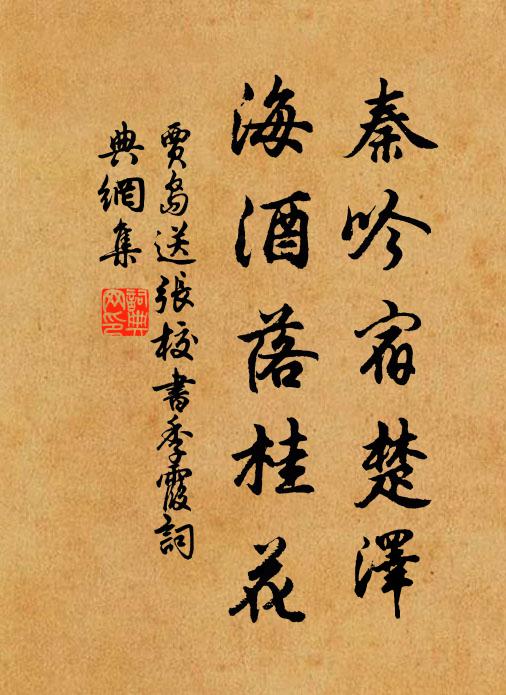 秦吟宿楚澤
海酒落桂花
賈島送張校書季霞詞
典網集
詞典網印